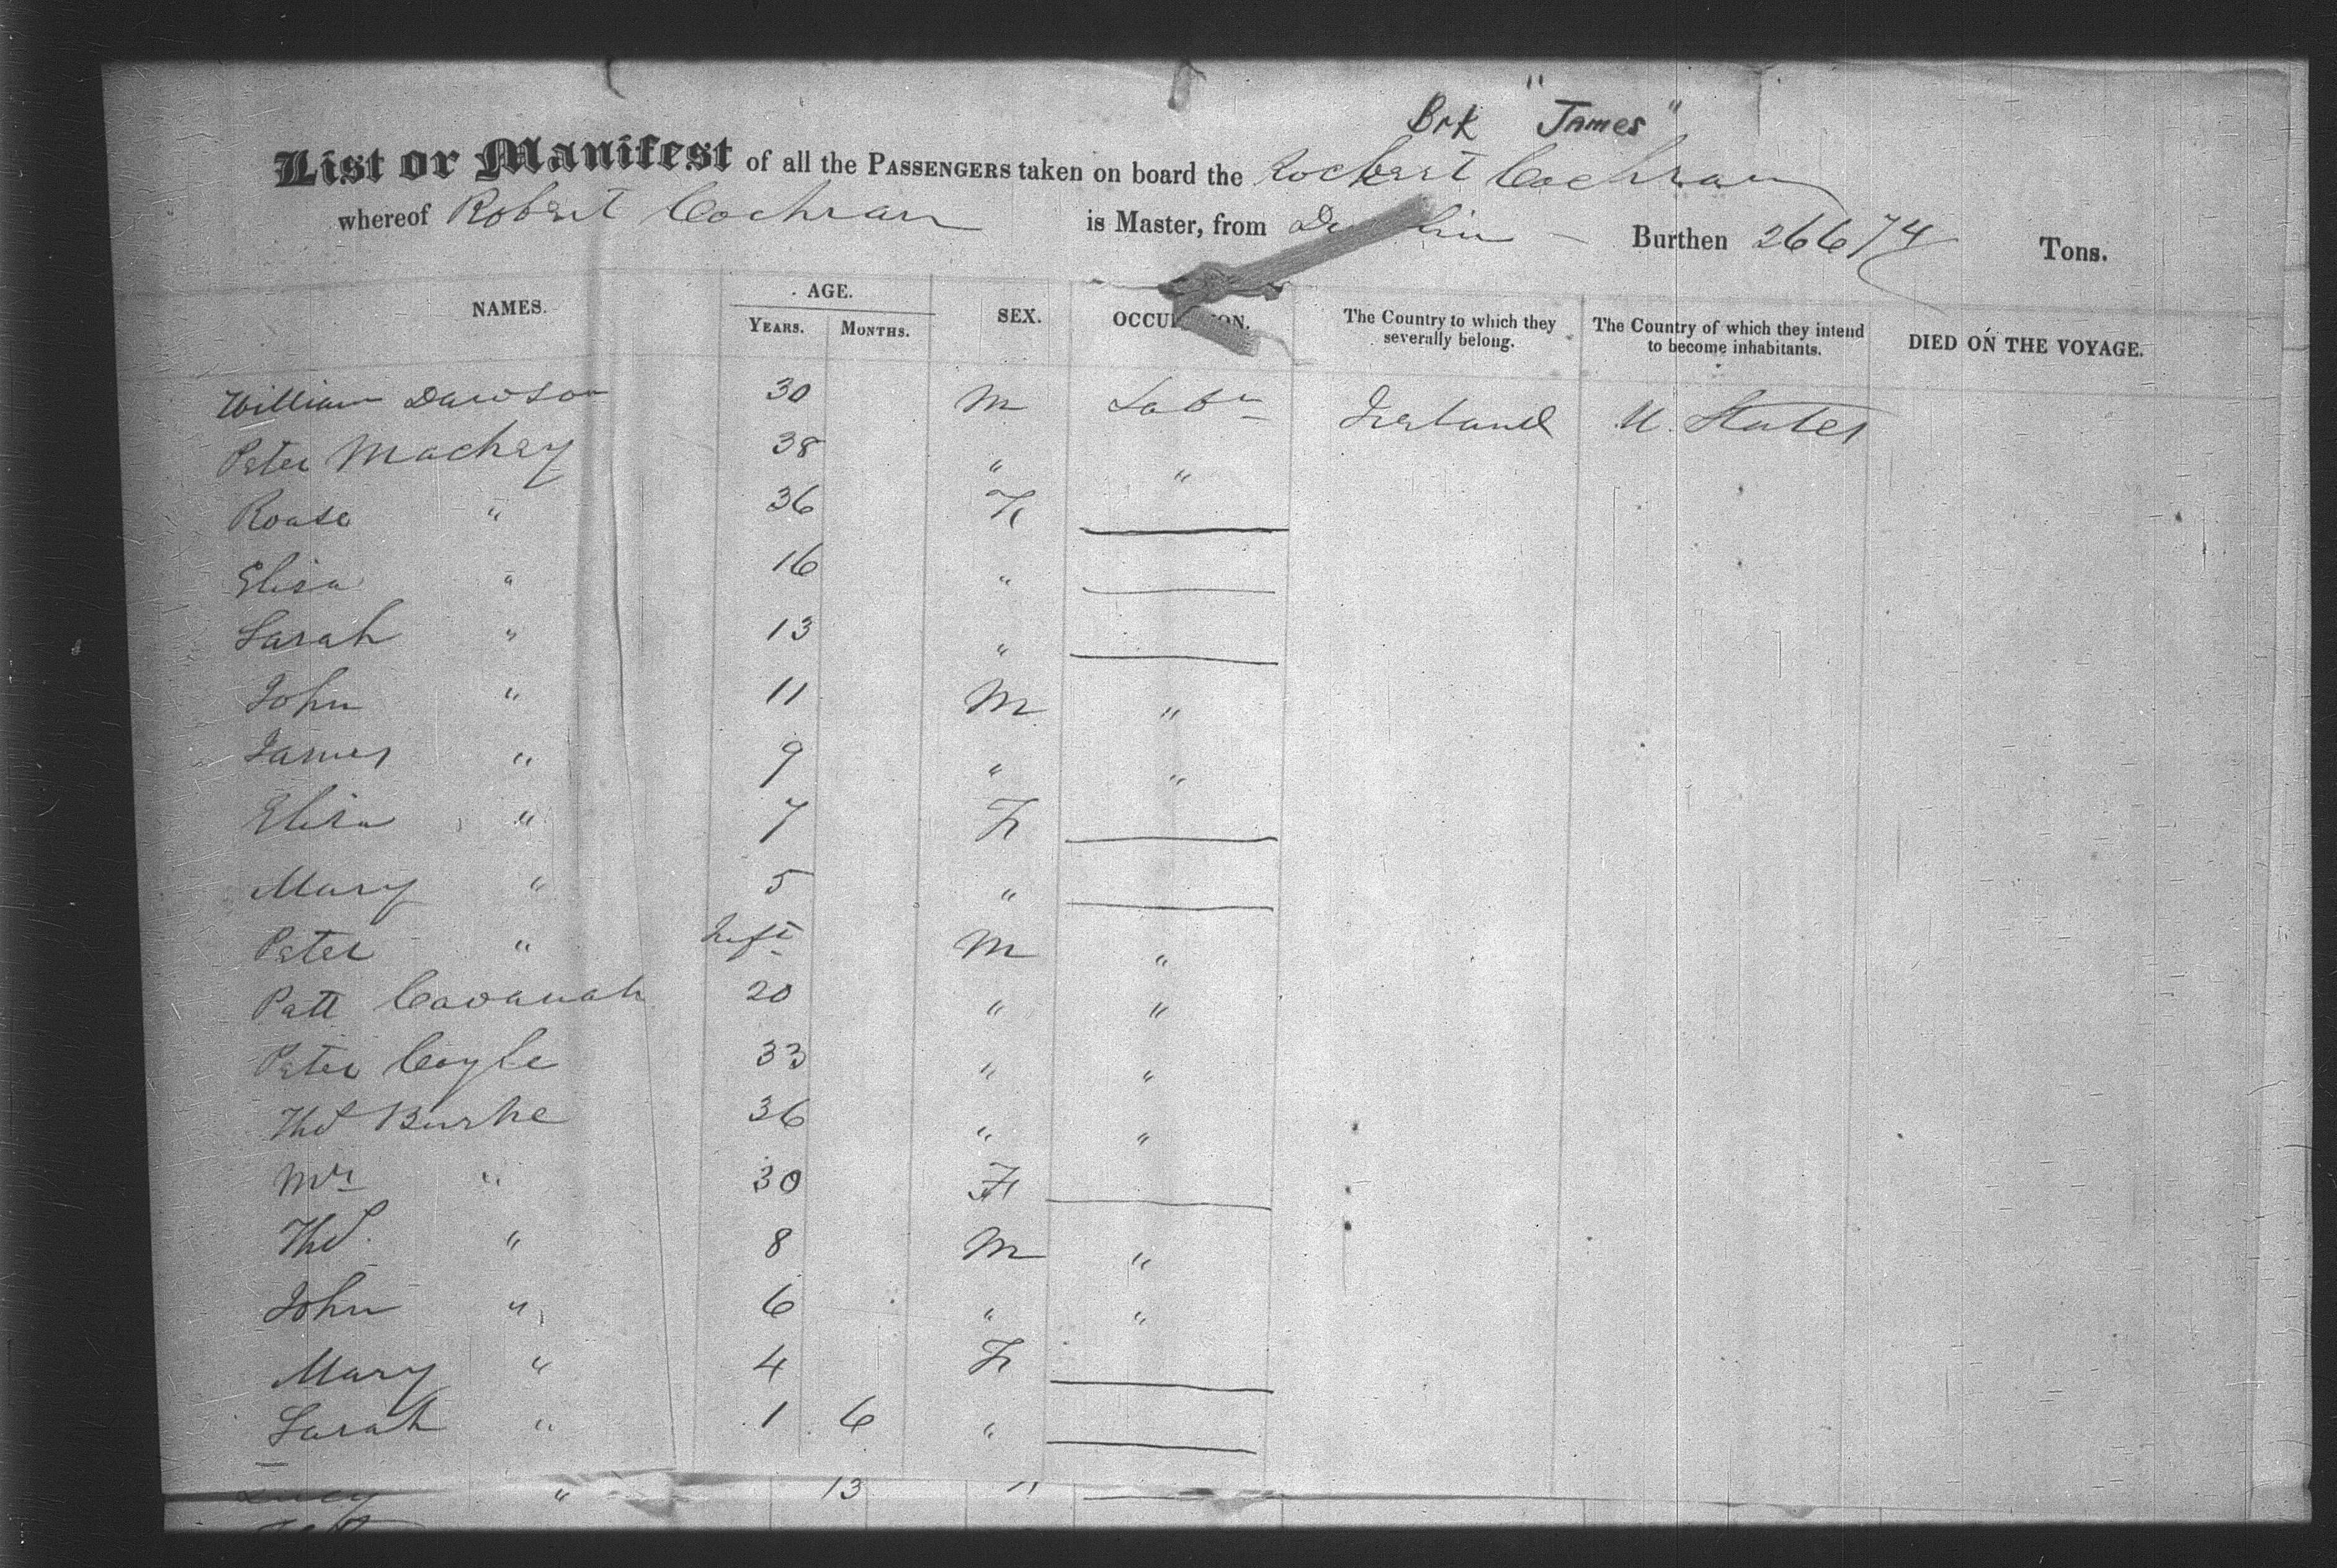 Brk "James"
List or Manifest of all the PASSENGERS taken on board the Robert Cochran
whereof Robert Cochran is Master, from Burthen 266 74 Tons.
NAMES. AGE. YEARS. MONTHS. SEX. The Country to which they severally belong. The Country of which they intend to become inhabitants. DIED ON THE VOYAGE.
William Dawson 30 M Labr Ireland U. States
Peter Mackey 38 " "
Roase " 36 F
Elisa " 16 "
Sarah " 13 "
John " 11 M "
James " 9 " "
Elisa " 7 F
Mary " 5 "
Peter " Inft M "
Patt Cavanah 20 " "
Peter Coyle 33 " "
Thos Burke 36 " "
Mrs " 30 F
Thos. " 8 M "
John " 6 " "
Mary " 4 F
Sarah " 1 6 "
" 13 "